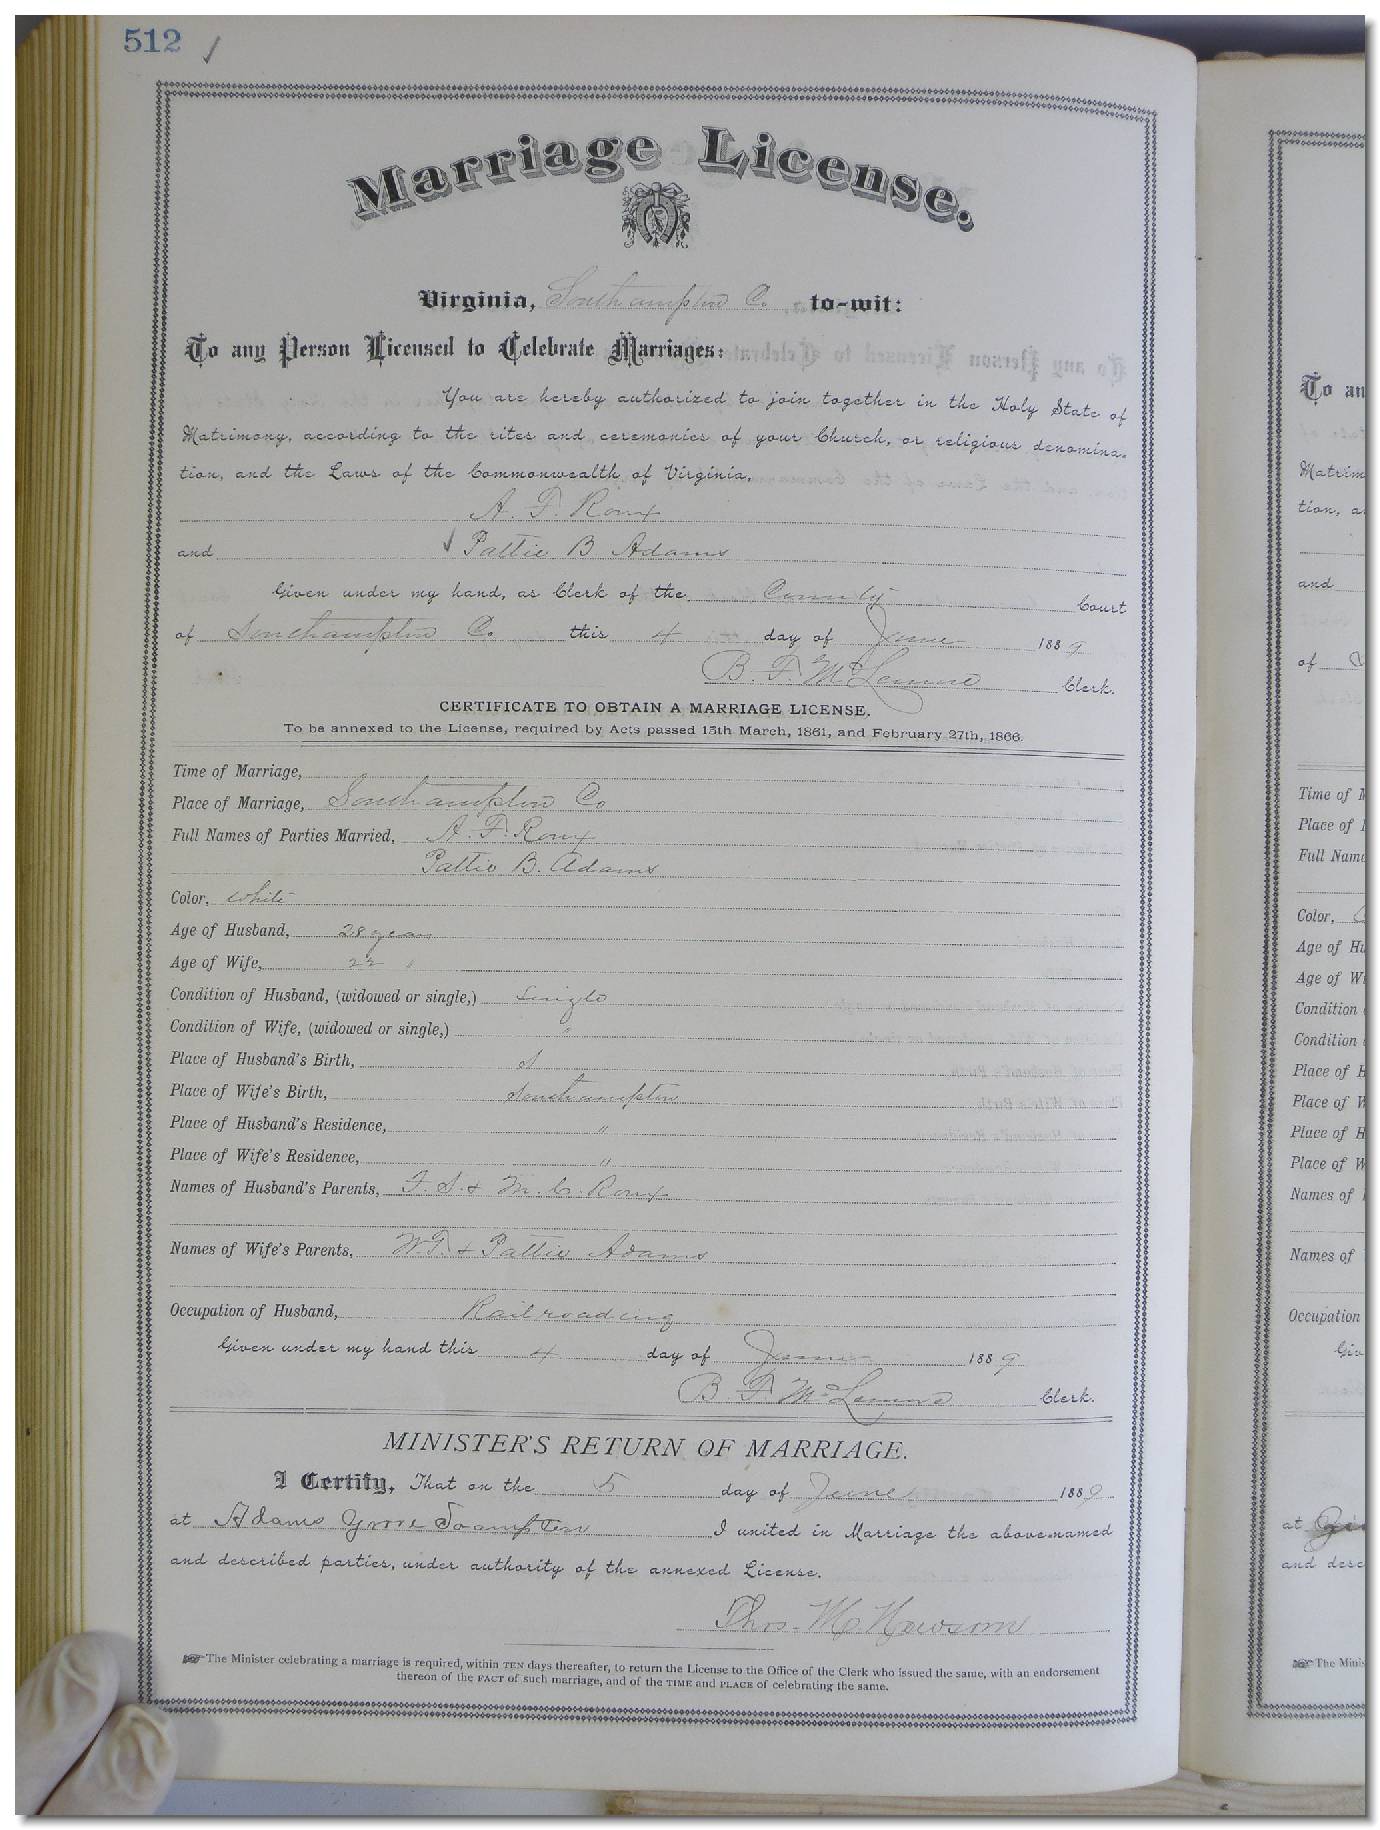 512 ✓
Marriage License.
Virginia, Southampton Co. to-wit:
To any Person Licensed to Celebrate Marriages:
You are hereby authorized to join together in the Holy State of
Matrimony, according to the rites and ceremonies of your Church, or religious denomina-
tion, and the Laws of the Commonwealth of Virginia,
A. F. Roux
and ✓ Pattie B Adams
Given under my hand, as Clerk of the County Court
of Southampton Co. this 4 day of June 1889
B. F. McLemore Clerk.
CERTIFICATE TO OBTAIN A MARRIAGE LICENSE.
To be annexed to the License, required by Acts passed 15th March, 1861, and February 27th, 1866.
Time of Marriage,
Place of Marriage, Southampton Co
Full Names of Parties Married, A. F. Roux
Pattie B. Adams
Color, white
Age of Husband, 28 years
Age of Wife, 22 "
Condition of Husband, (widowed or single,) Single
Condition of Wife, (widowed or single,) "
Place of Husband's Birth, S
Place of Wife's Birth, Southampton
Place of Husband's Residence, "
Place of Wife's Residence, "
Names of Husband's Parents, F. S. & M. C. Roux
Names of Wife's Parents, W. T. & Pattie Adams
Occupation of Husband, Railroading
Given under my hand this 4 day of June 1889
B. F. McLemore Clerk.
MINISTER'S RETURN OF MARRIAGE.
I Certify, That on the 5 day of June 1889
at Adams Grove I united in Marriage the above-named
and described parties, under authority of the annexed License.
Thos. M. Hawson
The Minister celebrating a marriage is required, within TEN days thereafter, to return the License to the Office of the Clerk who issued the same, with an endorsement
thereon of the FACT of such marriage, and of the TIME and PLACE of celebrating the same.
To an
Matrim
tion, a
and
of
Time of M
Place of
Full Nam
Color,
Age of Hu
Age of Wi
Condition
Condition
Place of H
Place of W
Place of H
Place of W
Names of
Names of
Occupation
Giv
at
and desc
The Minis